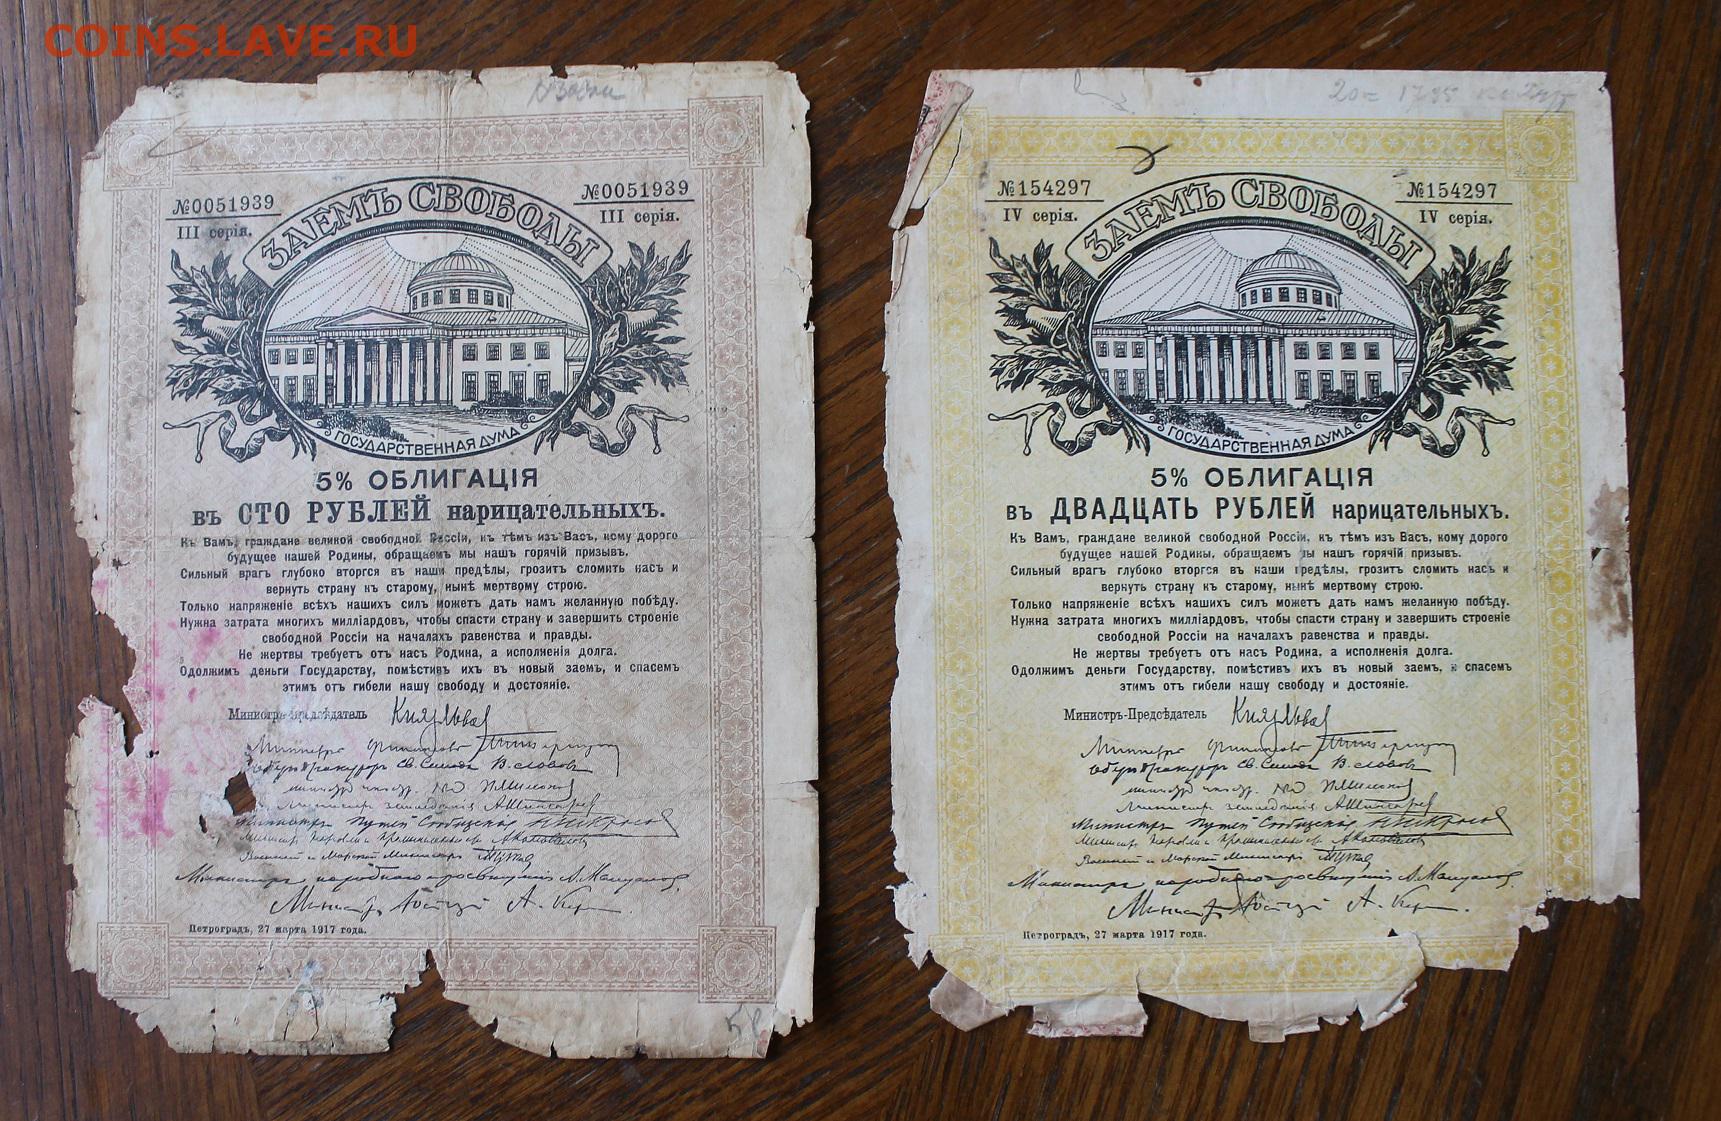 COINS.LAVE.RU
№0051939
№0051939
III серія.
III серія.
ЗАЕМЪ СВОБОДЫ
ГОСУДАРСТВЕННАЯ ДУМА
5% ОБЛИГАЦІЯ
въ СТО РУБЛЕЙ нарицательныхъ.
Къ Вамъ, граждане великой свободной Россіи, къ тѣмъ изъ Васъ, кому дорого
будущее нашей Родины, обращаемъ мы нашъ горячій призывъ.
Сильный врагъ глубоко вторгся въ наши предѣлы, грозитъ сломить насъ и
вернуть страну къ старому, нынѣ мертвому строю.
Только напряженіе всѣхъ нашихъ силъ можетъ дать намъ желанную побѣду.
Нужна затрата многихъ милліардовъ, чтобы спасти страну и завершить строеніе
свободной Россіи на началахъ равенства и правды.
Не жертвы требуетъ отъ насъ Родина, а исполненія долга.
Одолжимъ деньги Государству, помѣстивъ ихъ въ новый заемъ, и спасемъ
этимъ отъ гибели нашу свободу и достояніе.
Министръ-Предсѣдатель Князь Львов
Министръ Финансовъ
Оберъ Прокуроръ Св. Синода В. Львовъ
Министр земледѣлія А. Шингаревъ
Министръ Путей Сообщенія Н. Некрасов
Военный и Морской Министръ
Министръ народного просвѣщенія А. Мануиловъ
Министр Юстиціи А. Кер
Петроградъ, 27 марта 1917 года.
№154297
№154297
IV серія.
IV серія.
ЗАЕМЪ СВОБОДЫ
ГОСУДАРСТВЕННАЯ ДУМА
5% ОБЛИГАЦІЯ
въ ДВАДЦАТЬ РУБЛЕЙ нарицательныхъ.
Къ Вамъ, граждане великой свободной Россіи, къ тѣмъ изъ Васъ, кому дорого
будущее нашей Родины, обращаемъ мы нашъ горячій призывъ.
Сильный врагъ глубоко вторгся въ наши предѣлы, грозитъ сломить насъ и
вернуть страну къ старому, нынѣ мертвому строю.
Только напряженіе всѣхъ нашихъ силъ можетъ дать намъ желанную побѣду.
Нужна затрата многихъ милліардовъ, чтобы спасти страну и завершить строеніе
свободной Россіи на началахъ равенства и правды.
Не жертвы требуетъ отъ насъ Родина, а исполненія долга.
Одолжимъ деньги Государству, помѣстивъ ихъ въ новый заемъ, и спасемъ
этимъ отъ гибели нашу свободу и достояніе.
Министръ-Предсѣдатель Князь Львов
Министръ Финансовъ
Оберъ Прокуроръ Св. Синода В. Львовъ
Министр земледѣлія А. Шингаревъ
Министръ Путей Сообщенія Н. Некрасов
Военный и Морской Министръ
Министръ народного просвѣщенія А. Мануиловъ
Министр Юстиціи А. Кер
Петроградъ, 27 марта 1917 года.